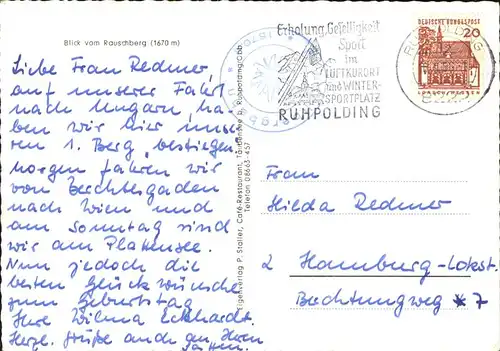 Blick vom Rauschberg (1670 m)
Liebe Frau Redmer,
auf unserer Fahrt
nach Ungarn, ha-
ben wir hier unse-
ren 1. Berg bestiegen.
Morgen fahren wir
von Berchtesgaden
nach Wien und
am Sonntag sind
wir am Plattensee.
Nun jedoch die
besten Glückwünsche
zum Geburtstag
Ihre Wilma Eckhardt.
Herzl. Grüße auch an Ihren
Gatten.
Eigenverlag P. Stoller, Café-Restaurant, Taubensee b. Ruhpolding/Obb.
Telefon 08663-457
Erholung, Geselligkeit
Sport
im
LUFTKURORT
und WINTER-
SPORTPLATZ
RUHPOLDING
DEUTSCHE BUNDESPOST
20
RUHPOLDING
8222
Frau
Hilda Redmer
2 Hamburg-Lokst.
Bechtungweg 7